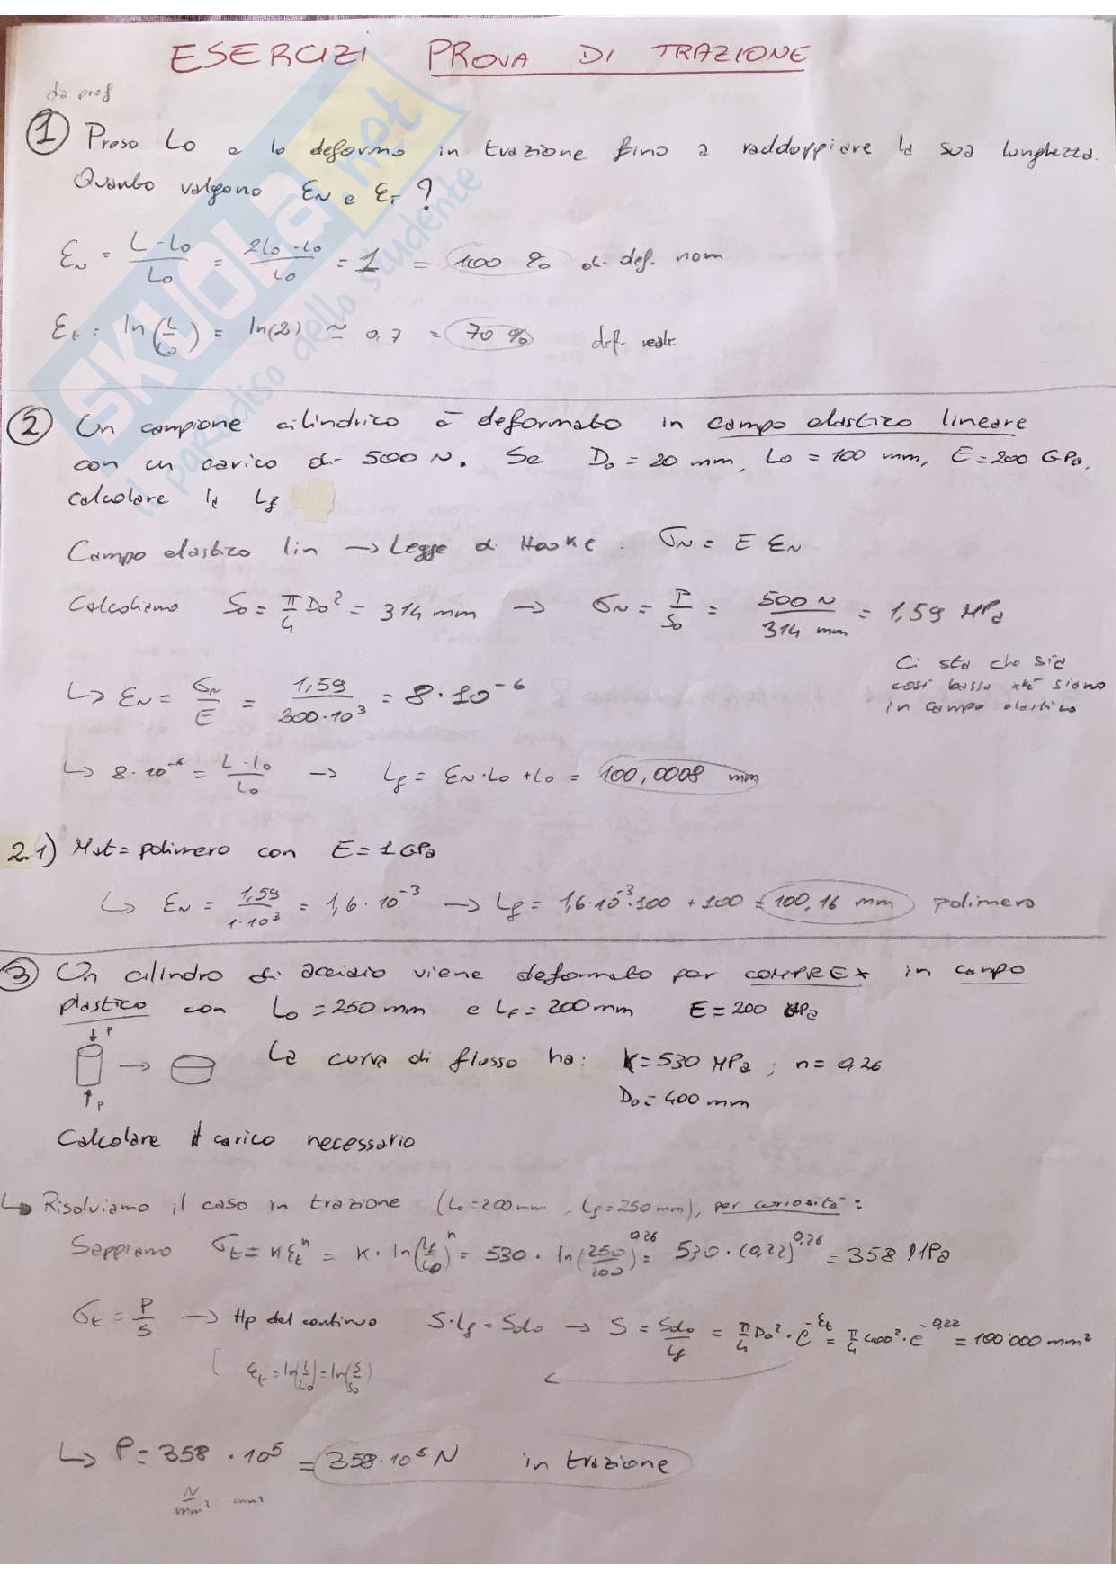 ESERCIZI PROVA DI TRAZIONE
da prof
① Preso Lo e lo deformo in trazione fino a raddoppiare la sua lunghezza.
Quanto valgono εN e εT ?
εN = (L-Lo)/Lo = (2Lo-Lo)/Lo = 1 = 100 % di def. nom
εt = ln(L/Lo) = ln(2) ≃ 0,7 = 70 % def. reale
② Un campione cilindrico è deformato in campo elastico lineare
con un carico di 500 N. Se Do = 20 mm, Lo = 100 mm, E = 200 GPa,
calcolare la Lf
Campo elastico lin → Legge di Hooke. σN = E εN
Calcoliamo So = π/4 Do² = 314 mm → σN = P/So = 500 N / 314 mm = 1,59 MPa
Ci sta che sia
così bassa xkè siamo
in campo elastico
↳ εN = σN/E = 1,59 / 200·10³ = 8·10⁻⁶
↳ 8·10⁻⁶ = (L-Lo)/Lo → Lf = εN·Lo + Lo = 100,0008 mm
2.1) Mat = polimero con E = 1 GPa
↳ εN = 1,59 / 1·10³ = 1,6·10⁻³ → Lf = 1,6·10⁻³·100 + 100 = 100,16 mm polimero
③ Un cilindro di acciaio viene deformato per COMPREX in campo
plastico con Lo = 250 mm e Lf = 200 mm E = 200 GPa
P
La curva di flusso ha: K = 530 MPa ; n = 0,26
P
Do = 400 mm
Calcolare il carico necessario
↳ Risolviamo il caso in trazione (Lo = 200 mm, Lf = 250 mm), per curiosità:
Sappiamo σt = K εtⁿ = K · ln(Lf/Lo)ⁿ = 530 · ln(250/200)^0,26 = 530 · (0,22)^0,26 = 358 MPa
σt = P/S → Hp del continuo S·Lf = SoLo → S = SoLo/Lf = π/4 Do² · e^-εt = π/4 400² · e^-0,22 = 100'000 mm²
↳ P = 358 · 10⁵ = 358·10⁵ N in trazione
N/mm² mm²
SKUOLA.net
il paradiso dello studente